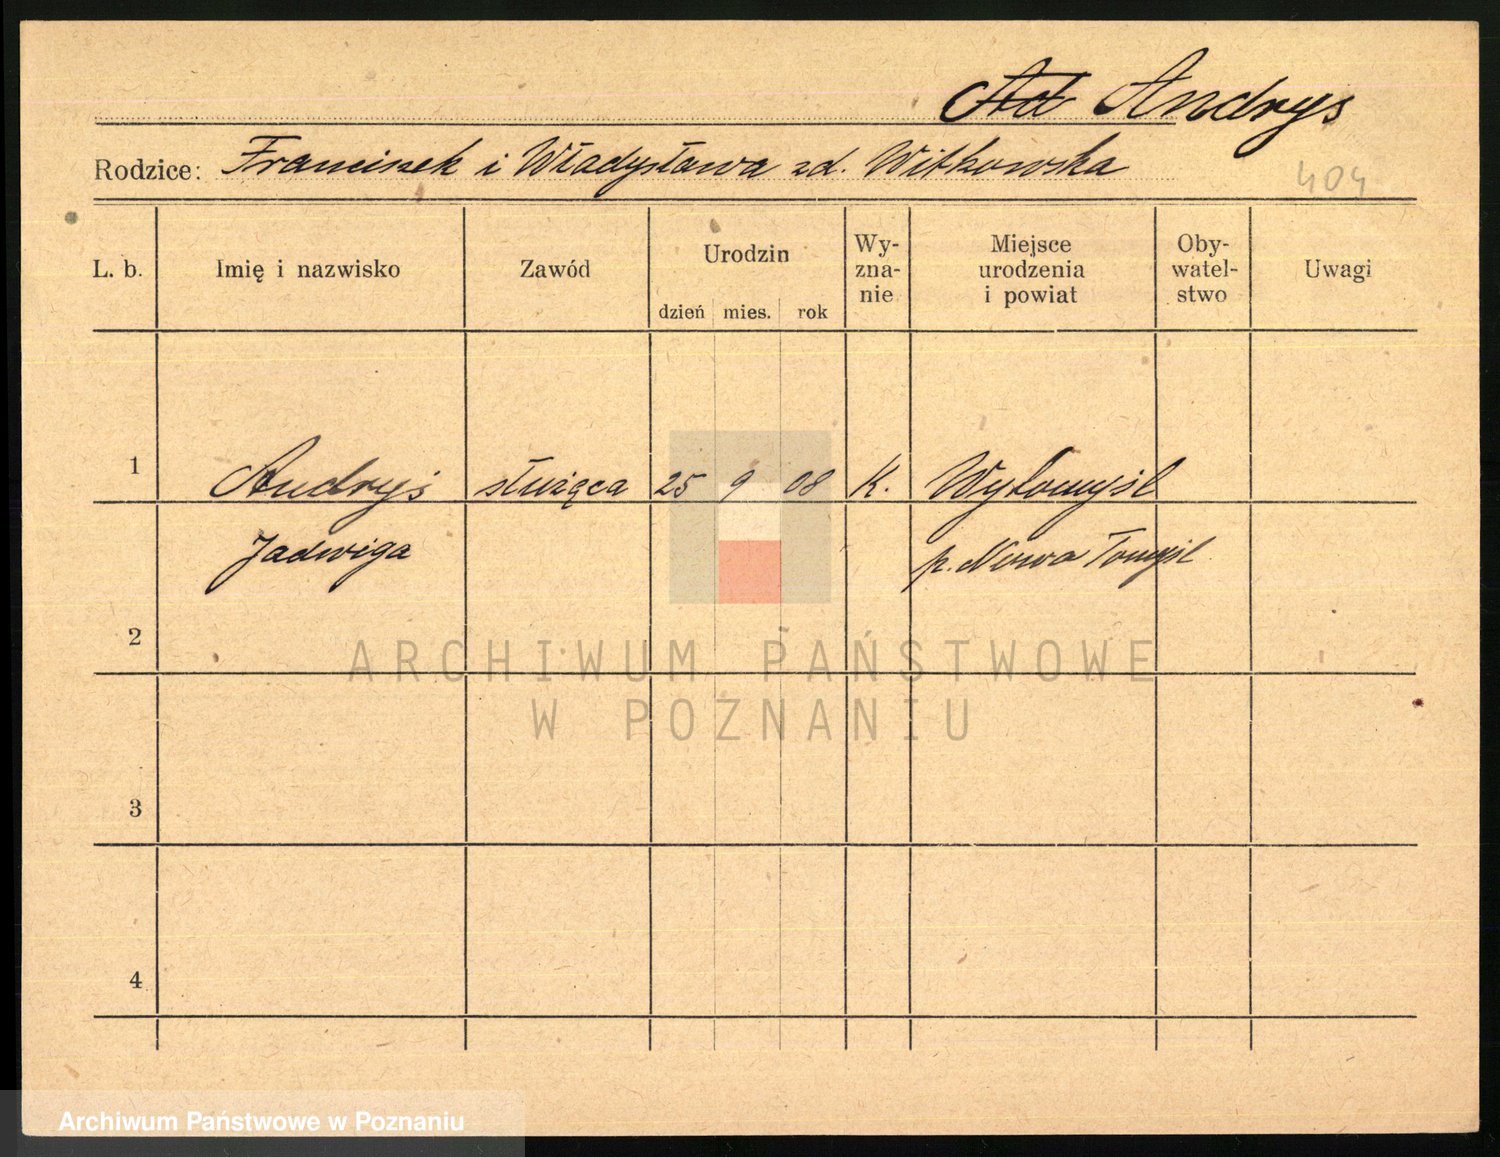 Ad Andrys
Rodzice: Franciszek i Władysława zd. Witkowska
404
L. b. Imię i nazwisko Zawód Urodzin dzień mies. rok Wy-zna-nie Miejsce urodzenia i powiat Oby-watel-stwo Uwagi
1 Andryś służąca 25 9 08 K. Wytomyśl
Jadwiga p. Nowo Tomyśl
2
ARCHIWUM PAŃSTWOWE
W POZNANIU
3
4
Archiwum Państwowe w Poznaniu